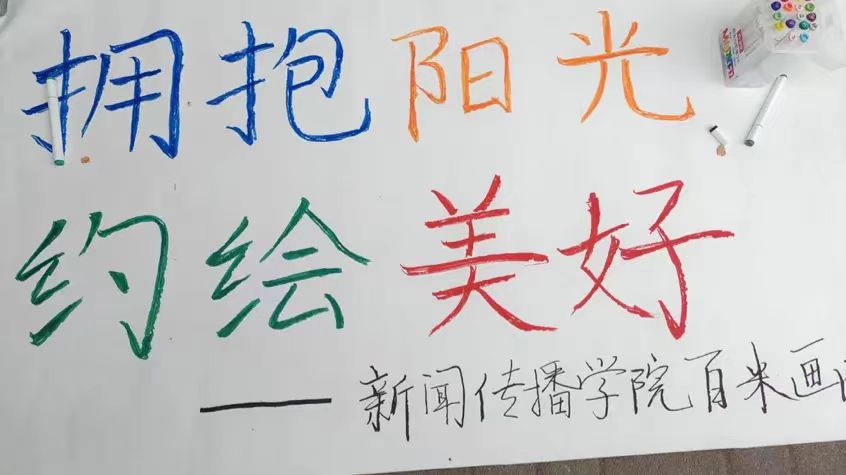 拥抱阳光
约绘美好
——新闻传播学院百米画